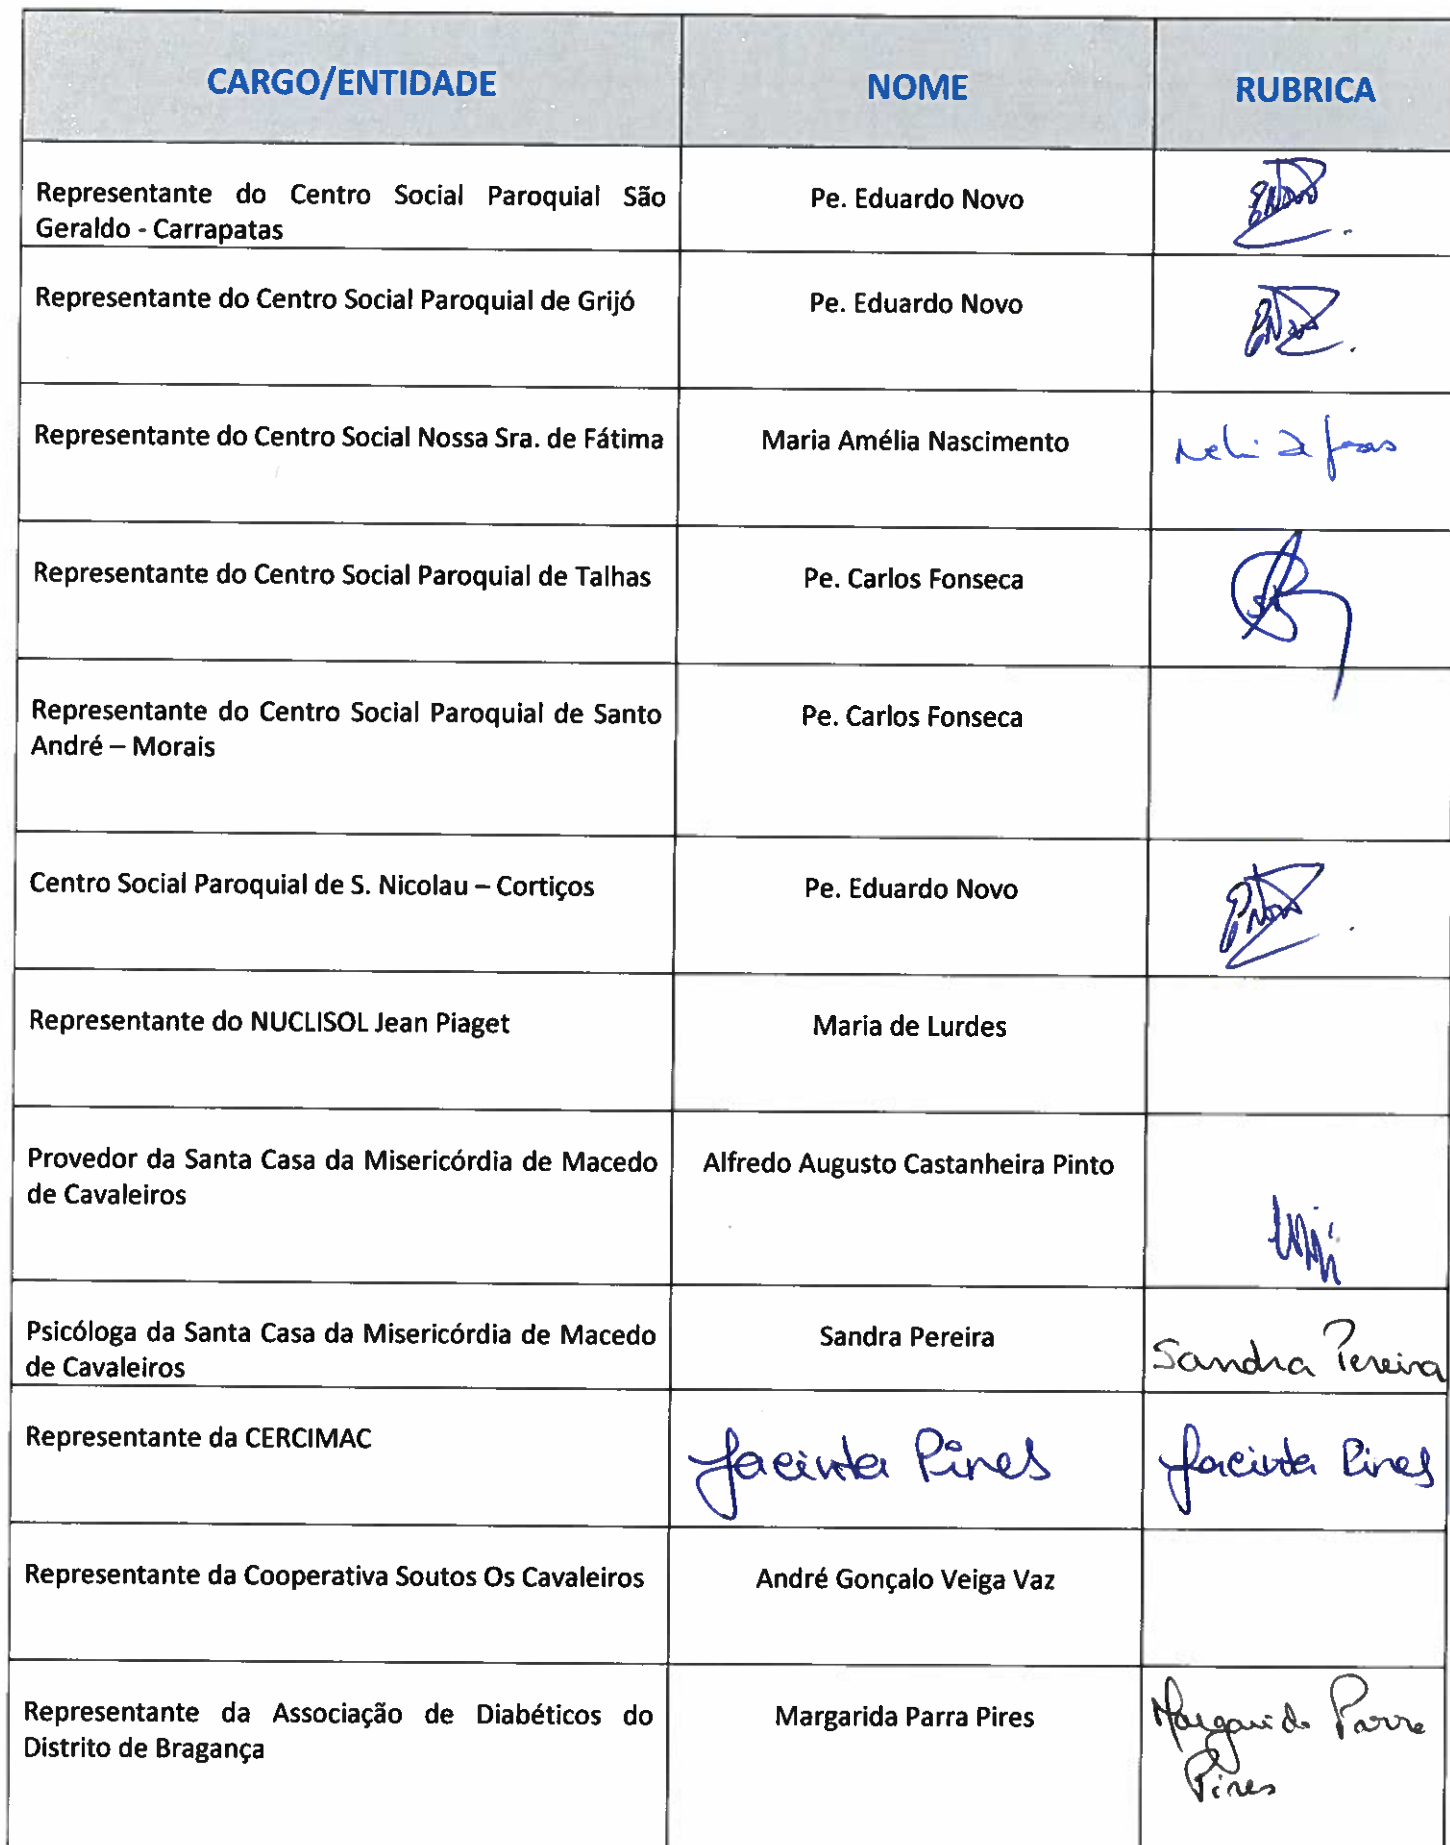 CARGO/ENTIDADE NOME RUBRICA
Representante do Centro Social Paroquial São
Geraldo - Carrapatas
Pe. Eduardo Novo
Representante do Centro Social Paroquial de Grijó
Pe. Eduardo Novo
Representante do Centro Social Nossa Sra. de Fátima
Maria Amélia Nascimento
Representante do Centro Social Paroquial de Talhas
Pe. Carlos Fonseca
Representante do Centro Social Paroquial de Santo
André – Morais
Pe. Carlos Fonseca
Centro Social Paroquial de S. Nicolau – Cortiços
Pe. Eduardo Novo
Representante do NUCLISOL Jean Piaget
Maria de Lurdes
Provedor da Santa Casa da Misericórdia de Macedo
de Cavaleiros
Alfredo Augusto Castanheira Pinto
Psicóloga da Santa Casa da Misericórdia de Macedo
de Cavaleiros
Sandra Pereira
Sandra Pereira
Representante da CERCIMAC
Jacinta Pires
Jacinta Pires
Representante da Cooperativa Soutos Os Cavaleiros
André Gonçalo Veiga Vaz
Representante da Associação de Diabéticos do
Distrito de Bragança
Margarida Parra Pires
Margarida Parra
Pires